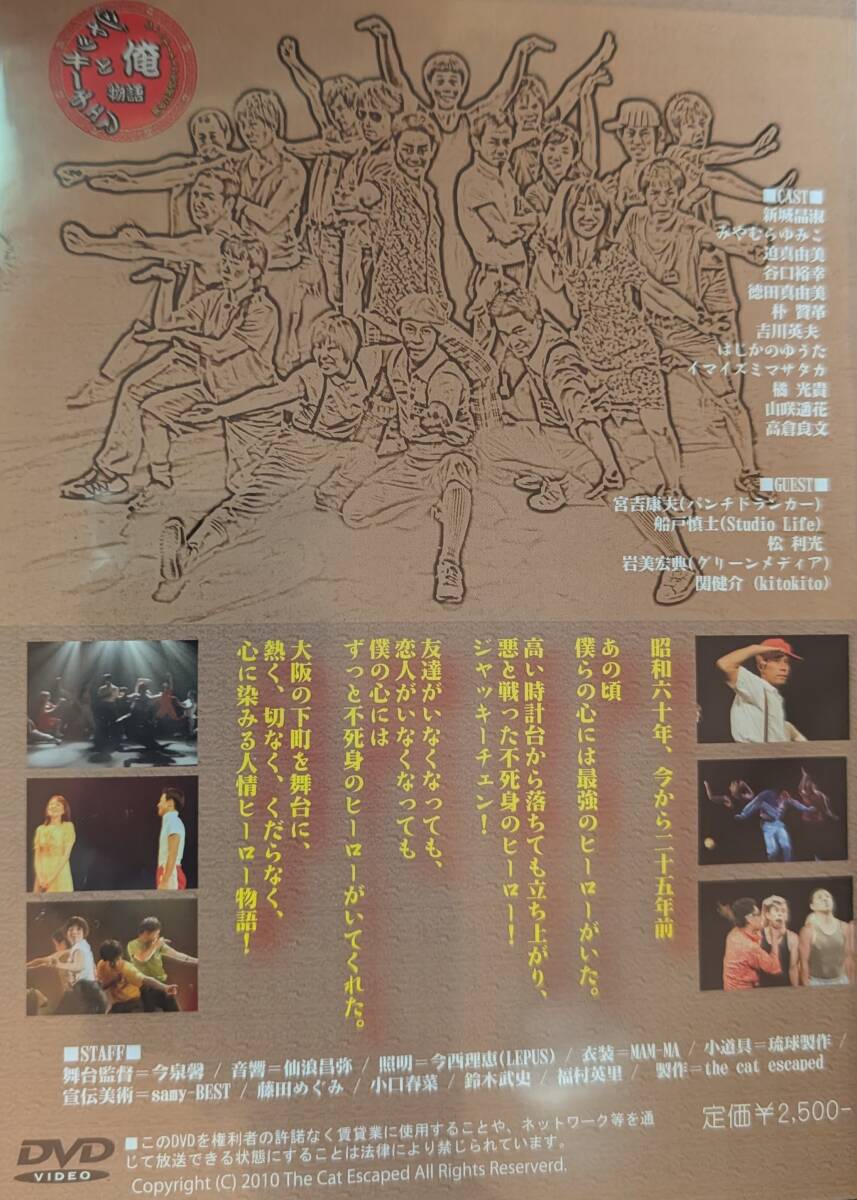 俺
と
物語
■CAST■
新城晶淑
みやむらゆみこ
迫真由美
谷口裕幸
徳田真由美
朴 賢革
吉川英夫
はじかのゆうた
イマイズミマサタカ
橘 光貴
山咲遥花
高倉良文
■GUEST■
宮吉康夫(パンチドランカー)
船戸慎士(Studio Life)
松 利光
岩美宏典(グリーンメディア)
関健介 (kitokito)
昭和六十年、今から二十五年前
あの頃
僕らの心には最強のヒーローがいた。
高い時計台から落ちても立ち上がり、
悪と戦った不死身のヒーロー!
ジャッキーチェン!
友達がいなくなっても、
恋人がいなくなっても
僕の心には
ずっと不死身のヒーローがいてくれた。
大阪の下町を舞台に、
熱く、切なく、くだらなく、
心に染みる人情ヒーロー物語!
■STAFF■
舞台監督=今泉馨 / 音響=仙浪昌弥 / 照明=今西理恵(LEPUS) / 衣装=MAM-MA / 小道具=琉球製作 /
宣伝美術=samy-BEST / 藤田めぐみ / 小口春菜 / 鈴木武史 / 福村英里 / 製作=the cat escaped
定価¥2,500-
DVD
VIDEO
■このDVDを権利者の許諾なく賃貸業に使用することや、ネットワーク等を通
じて放送できる状態にすることは法律により禁じられています。
Copyright (C) 2010 The Cat Escaped All Rights Reserverd.